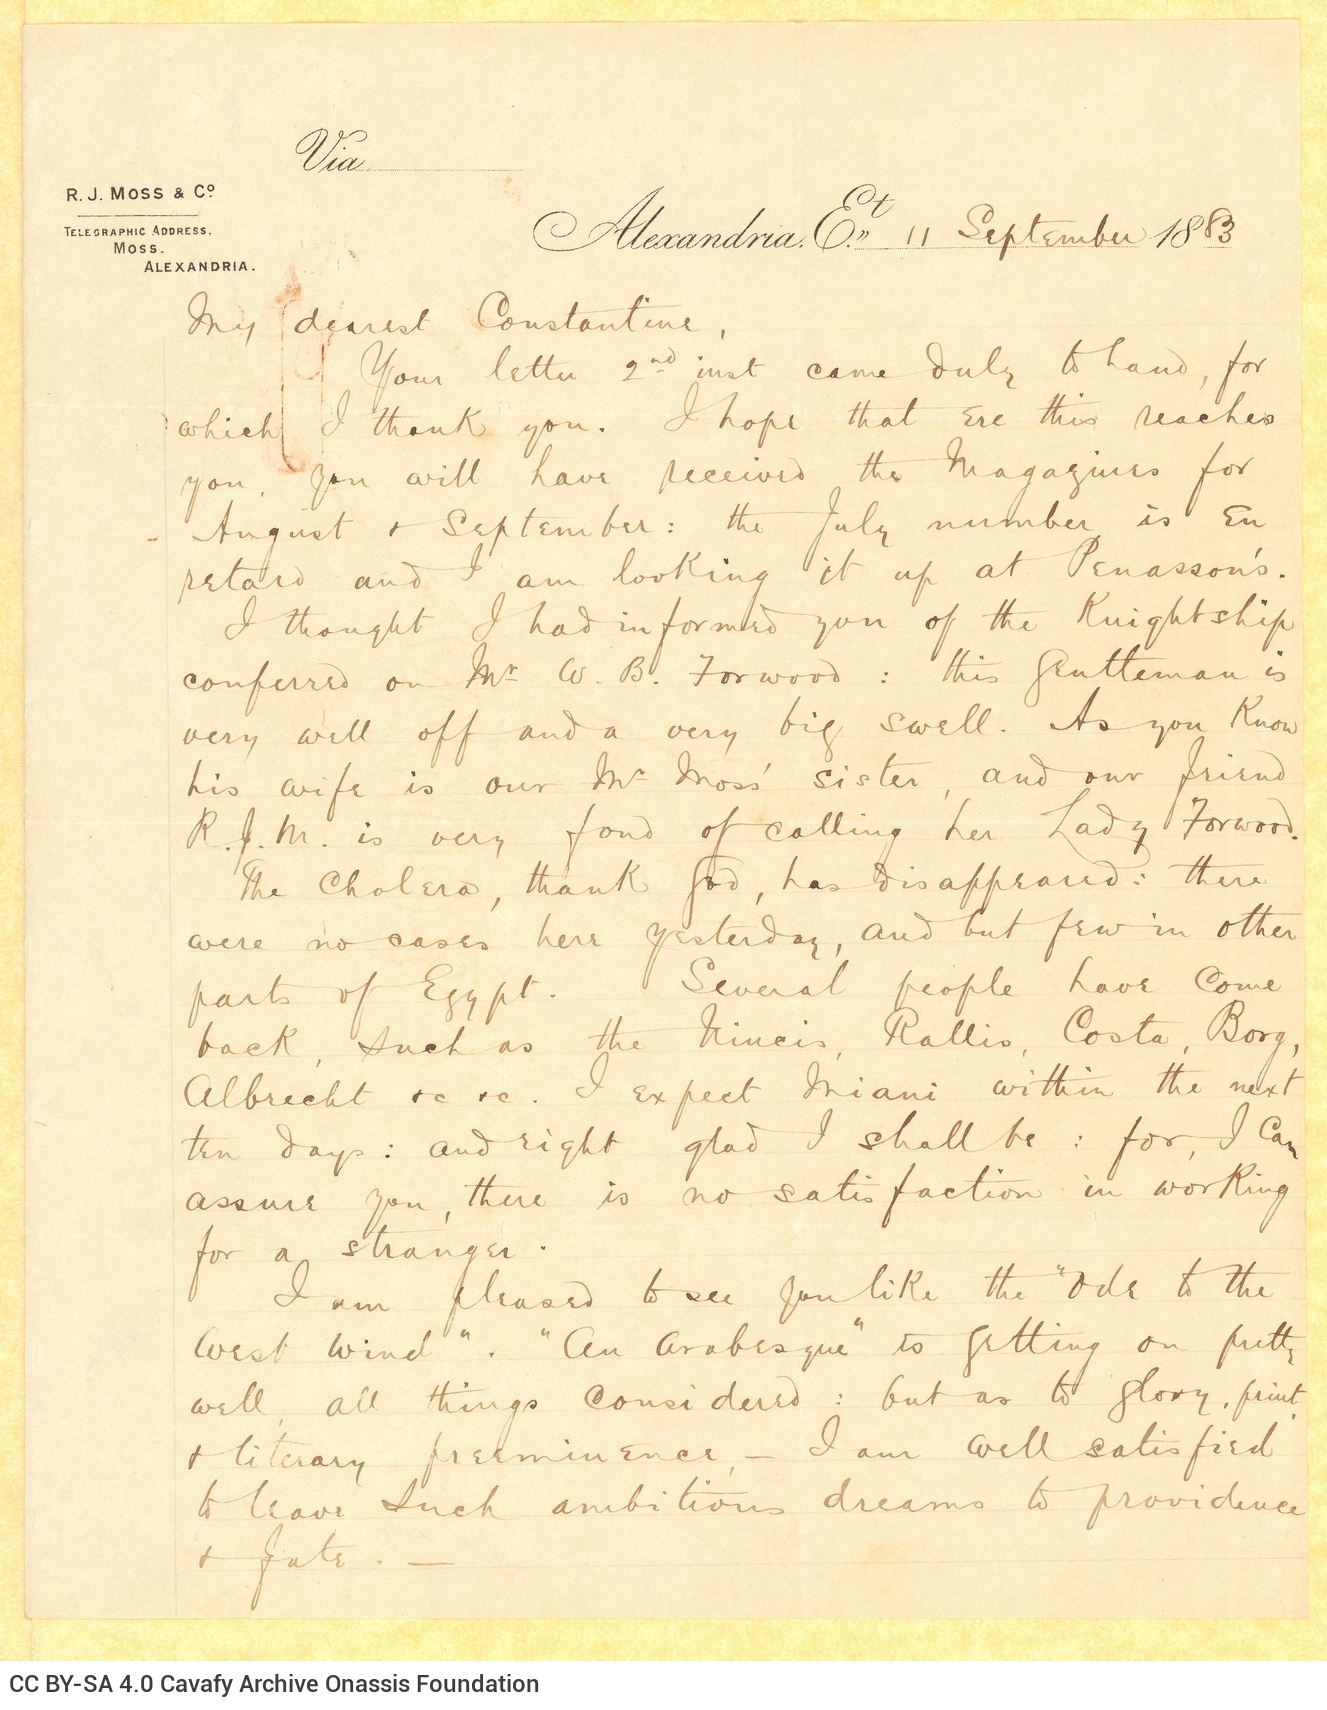 Via
R. J. MOSS & Co.
TELEGRAPHIC ADDRESS,
MOSS.
ALEXANDRIA.
Alexandria. Et. 11 September 1883
My dearest Constantine,
Your letter 2nd inst came duly to hand, for
which I thank you. I hope that ere this reaches
you, you will have received the Magazines for
August & September: the July number is en
retard and I am looking it up at Penasson's.
I thought I had informed you of the Knightship
conferred on Mr W. B. Forwood: this gentleman is
very well off and a very big swell. As you know
his wife is our Mr Moss' sister, and our friend
R.J.M. is very fond of calling her Lady Forwood.
The Cholera, thank God, has disappeared: there
were no cases here yesterday, and but few in other
parts of Egypt. Several people have come
back, such as the Nincis, Rallis, Costa, Borg,
Albrecht &c &c. I expect Miani within the next
ten days: and right glad I shall be: for, I can
assure you, there is no satisfaction in working
for a stranger.
I am pleased to see you like the "Ode to the
West Wind". "An Arabesque" is getting on pretty
well, all things considered: but as to glory, print
& literary preeminence, — I am well satisfied
to leave such ambitious dreams to providence
& fate. —
CC BY-SA 4.0 Cavafy Archive Onassis Foundation